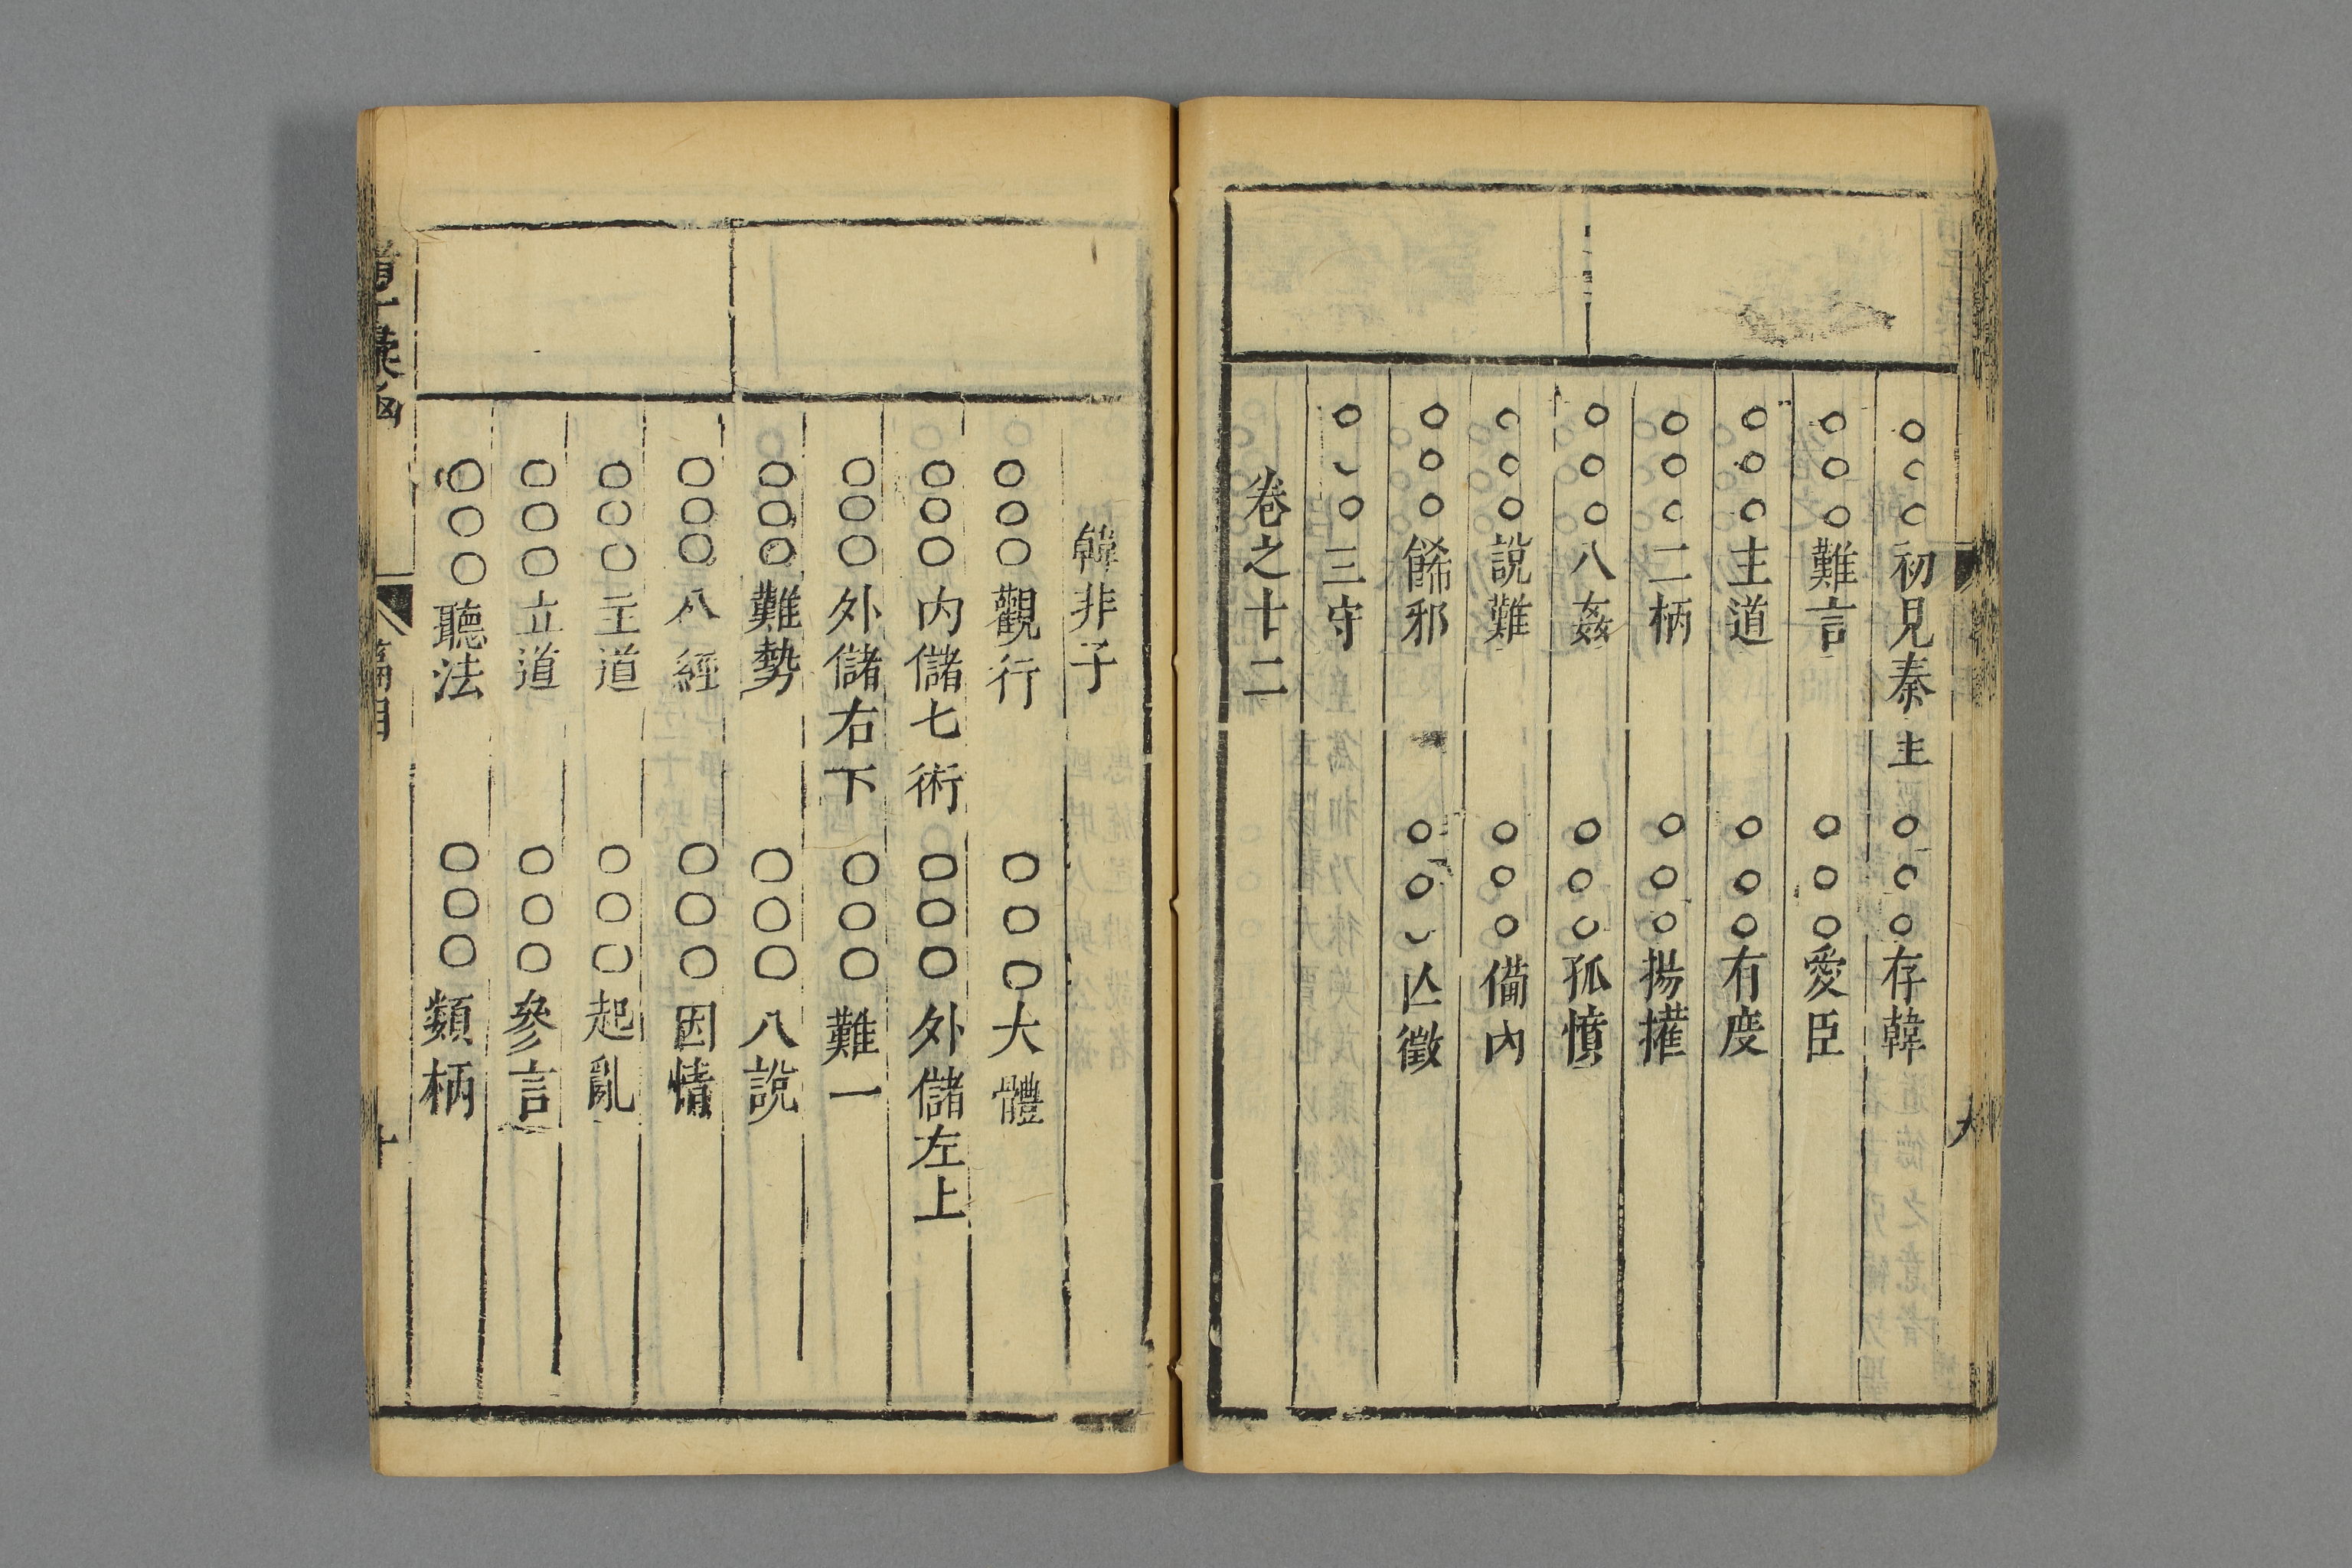 ○○○初見秦主 ○○○存韓
○○○難言 ○○○愛臣
○○○主道 ○○○有度
○○○二柄 ○○○揚搉
○○○八姦 ○○○孤憤
○○○說難 ○○○備內
○○○餙邪 ○○○亾徵
○○○三守
卷之十二
韓非子
○○○觀行 ○○○大體
○○○內儲七術 ○○○外儲左上
○○○外儲右下 ○○○難一
○○○難勢 ○○○八說
○○○八經 ○○○因情
○○○主道 ○○○起亂
○○○立道 ○○○參言
○○○聽法 ○○○類柄